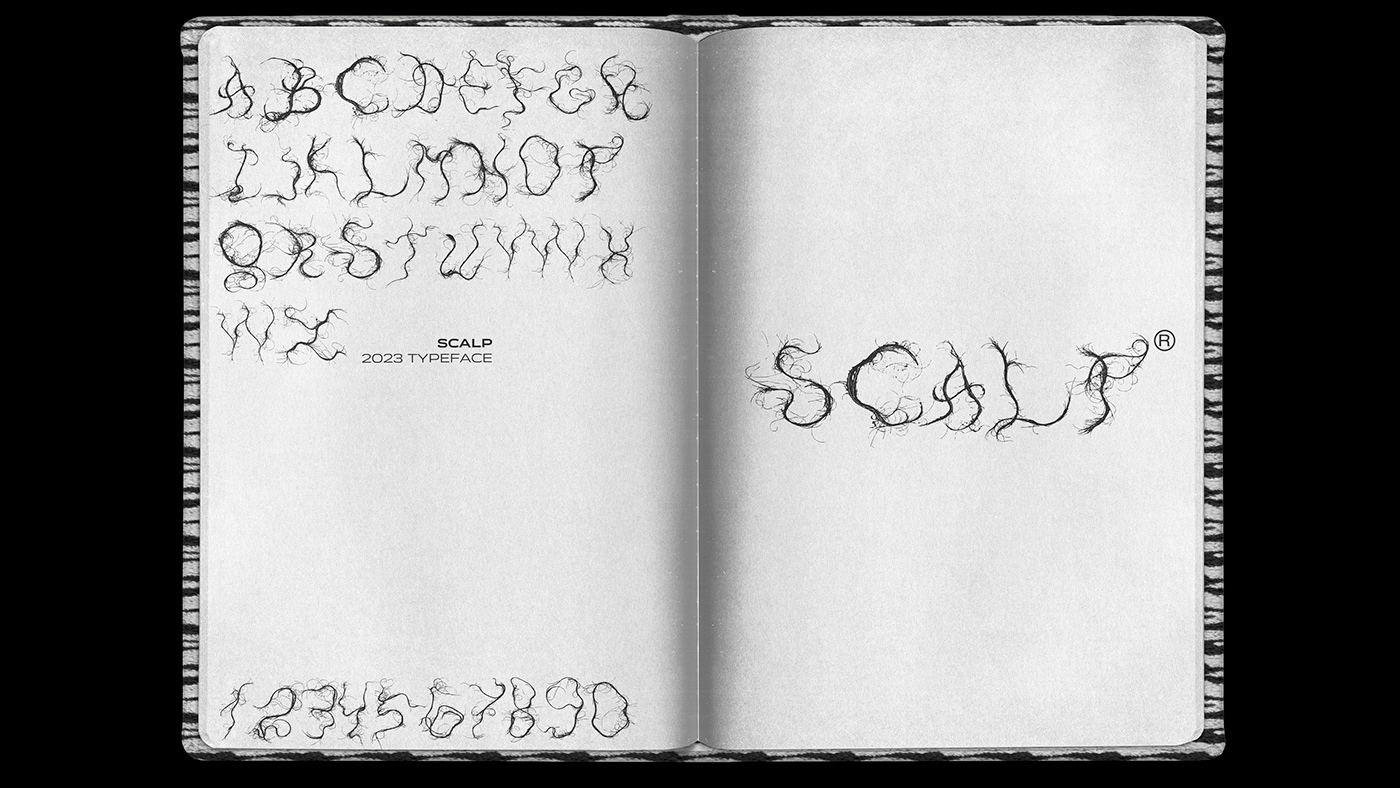 ABCDEFGH
IJKLMNOP
QRSTUVWX
YZ
SCALP
2023 TYPEFACE
1234567890
SCALP®